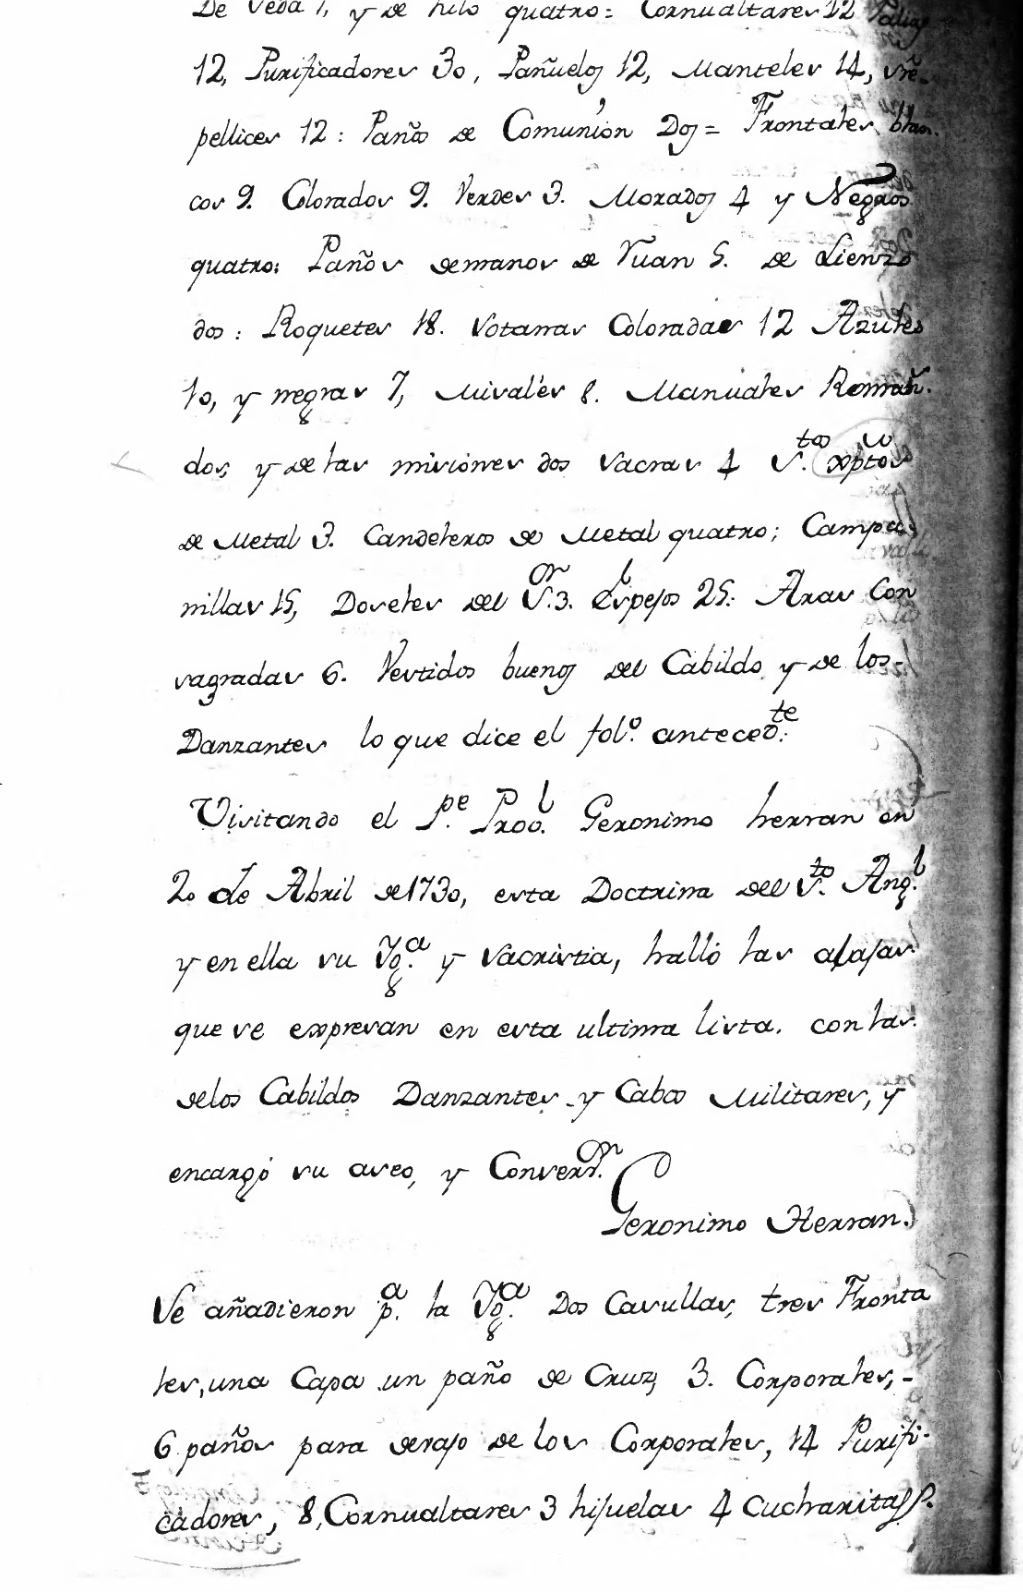 De Veda 1, y de hilo quatro: Cornualtares 12 Palias
12, Purificadores 30, Pañuelos 12, Manteles 14, sre-
pellices 12: Paños de Comunion Dos = Frontales blan-
cos 9. Colorados 9. Verdes 3. Morados 4 y Negros
quatro: Paños demanos de Ruan 5. de Lienzo
dos: Roquetes 18. Sotanas Coloradas 12 Azules
10, y negras 7, Misales 8. Manuales Roman.
dos; y de las misiones dos Sacras 4 S.tos xptos
de Metal 3. Candeleros de Metal quatro; Campa
nillas 15, Doseles del S.or 3. Espejos 25: Aras Con
sagradas 6. Vestidos buenos del Cabildo y de los
Danzantes lo que dice el fol.o anteced.te:
Visitando el P.e Pro.l Geronimo herran en
20 de Abril de 1730, esta Doctrina del S.to Ang.l
y en ella su Yg.a y Sacristia, halló las alajas
que se expresan en esta ultima lista. con las
delos Cabildos Danzantes y Cabos Militares, y
encargó su aseo, y Conserv.on
Geronimo Herran.
Se añadieron p.a la Yg.a Dos Casullas, tres Fronta
les, una Capa un paño de Cruz, 3. Corporales, -
6 paños para debajo de los Corporales, 14 Purifi-
cadores, 8, Cornualtares 3 hijuelas 4 cucharitas